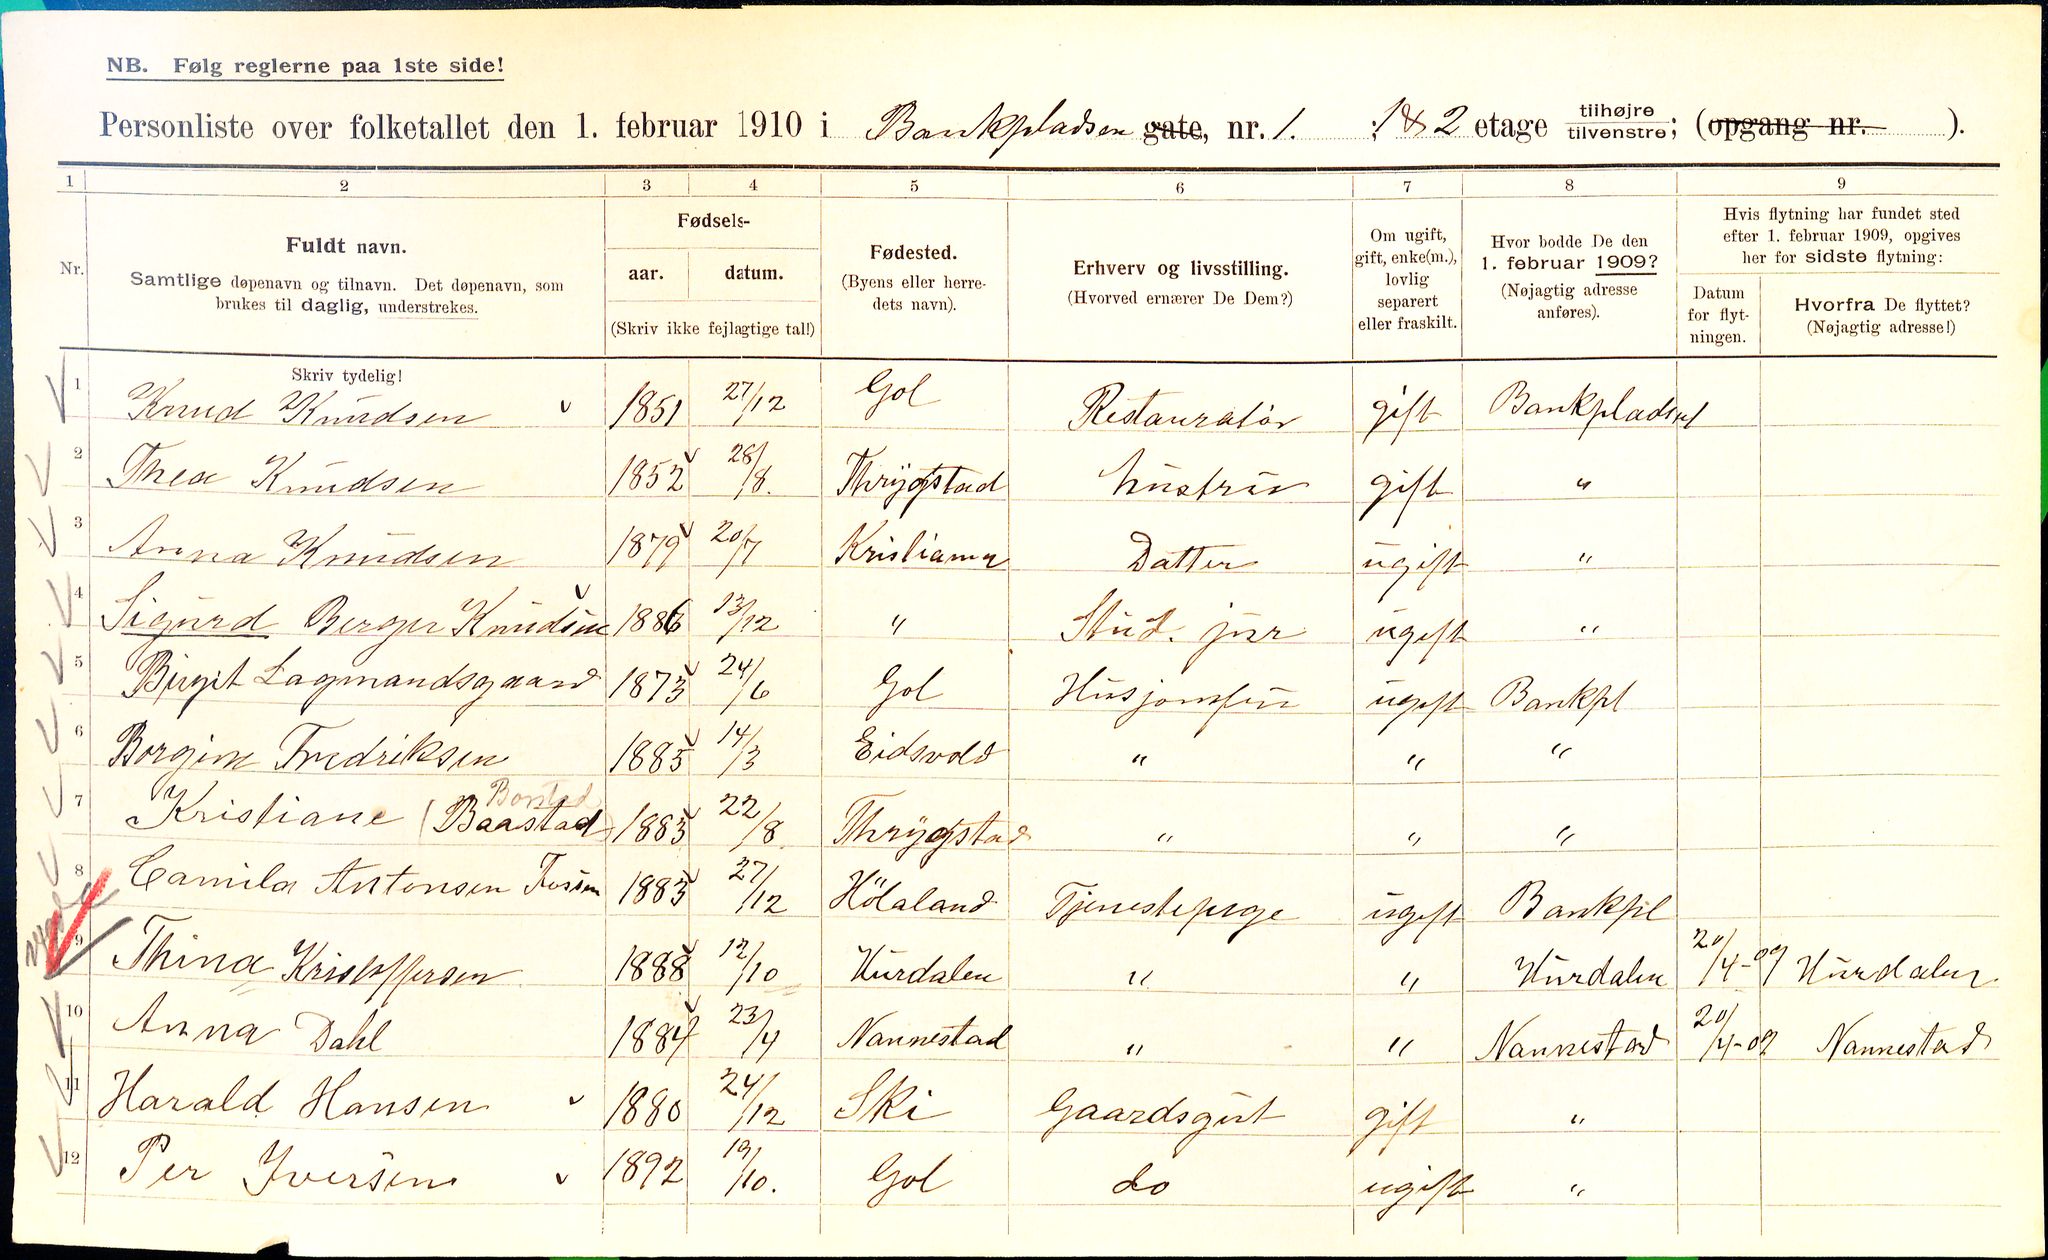 NB. Følg reglerne paa 1ste side!
Personliste over folketallet den 1. februar 1910 i Bankpladsen gate, nr. 1. ; 1 & 2 etage tilhøjre tilvenstre; (opgang nr. ).
1 2 3 4 5 6 7 8 9
Nr. Fuldt navn. Samtlige døpenavn og tilnavn. Det døpenavn, som brukes til daglig, understrekes.
Fødsels- aar. datum. (Skriv ikke fejlagtige tal!)
Fødested. (Byens eller herredets navn).
Erhverv og livsstilling. (Hvorved ernærer De Dem?)
Om ugift, gift, enke(m.), lovlig separert eller fraskilt.
Hvor bodde De den 1. februar 1909? (Nøjagtig adresse anføres).
Hvis flytning har fundet sted efter 1. februar 1909, opgives her for sidste flytning:
Datum for flytningen. Hvorfra De flyttet? (Nøjagtig adresse!)
Skriv tydelig!
1 Knud Knudsen 1851 27/12 Gol Restauratør gift Bankpladsen
2 Thea Knudsen 1852 28/8. Thrygstad hustru gift "
3 Anna Knudsen 1879 20/7 Kristiania Datter ugift "
4 Sigurd Berger Knudsen 1886 13/12 " Stud. jur ugift "
5 Birgit Lagmandsgaard 1873 24/6 Gol Husjomfru ugift Bankpl
6 Borgine Fredriksen 1885 14/3 Eidsvold " " "
7 Kristiane (Baastad) 1883 22/8. Thrygstad " " "
8 Camila Antonsen 1883 27/12 Hölaland Tjenestepige ugift Bankpl
9 Thina Kristoffersen 1888 12/10 Hurdalen " " Hurdalen 20/4-09 Hurdalen
10 Anna Dahl 1884 23/4 Nannestad " " Nannestad 20/4-09 Nannestad
11 Harald Hansen 1880 24/12 Ski Gaardsgut gift "
12 Per Iversen 1892 19/10. Gol do ugift "